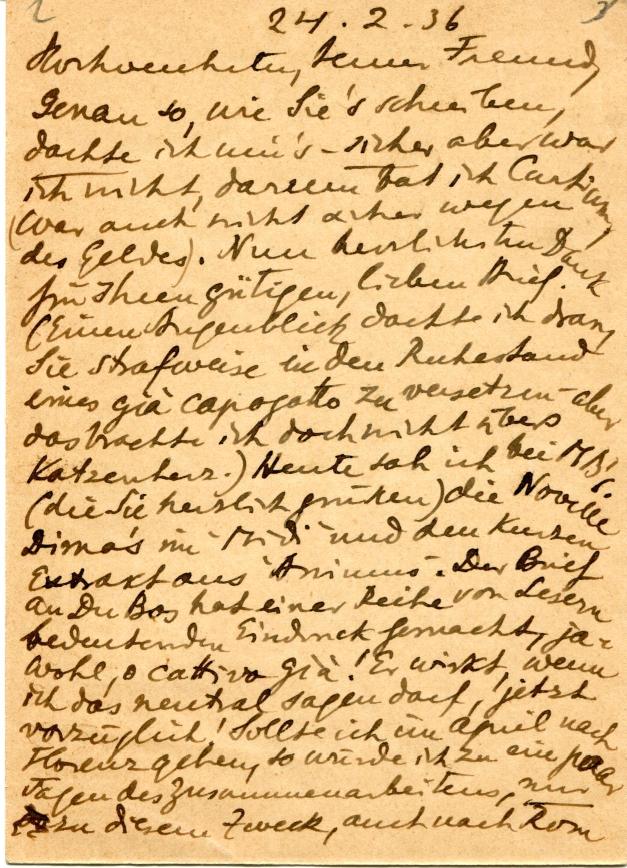 24.2.36
Hochverehrter, Freund,
Genau so, wie Sie's schreiben,
dachte ich mir's - sicher aber war
ich nicht, darum bat ich
(war auch nicht sicher wegen
des Geldes). Nun herzlichsten Dank
für Ihren gütigen, lieben Brief.
(Einen Augenblick dachte ich dran,
Sie strafweise in den Ruhestand
eines già capogatto zu versetzen - aber
das brachte ich doch nicht übers
Katzenherz.) Heute sah ich bei
(die Sie herzlich grüssen) die Novelle
Dima's im "Midi" und den kurzen
Extrakt aus "Animus". Der Brief
an Du Bos hat einer Reihe von Lesern
bedeutenden Eindruck gemacht, ja-
wohl, o cattivo già! Er wirkt, wenn
ich das neutral sagen darf, jetzt
vorzüglich! Sollte ich im April nach
Florenz gehen, so würde ich zu ein paar
Tagen des Zusammenarbeitens, nur
zu diesem Zweck, auch nach Rom